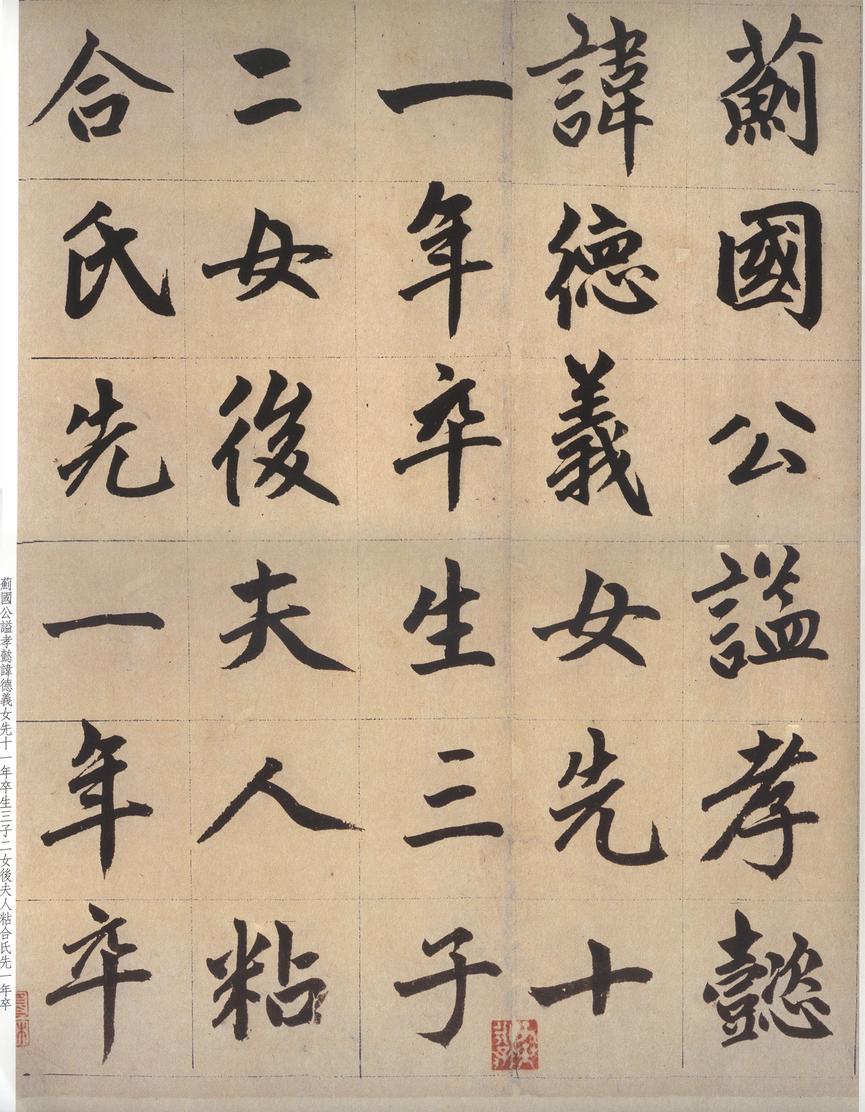 薊國公謚孝懿
諱德義女先十
一年卒生三子
二女後夫人粘
合氏先一年卒
薊國公謚孝懿諱德義女先十一年卒生三子二女後夫人粘合氏先一年卒